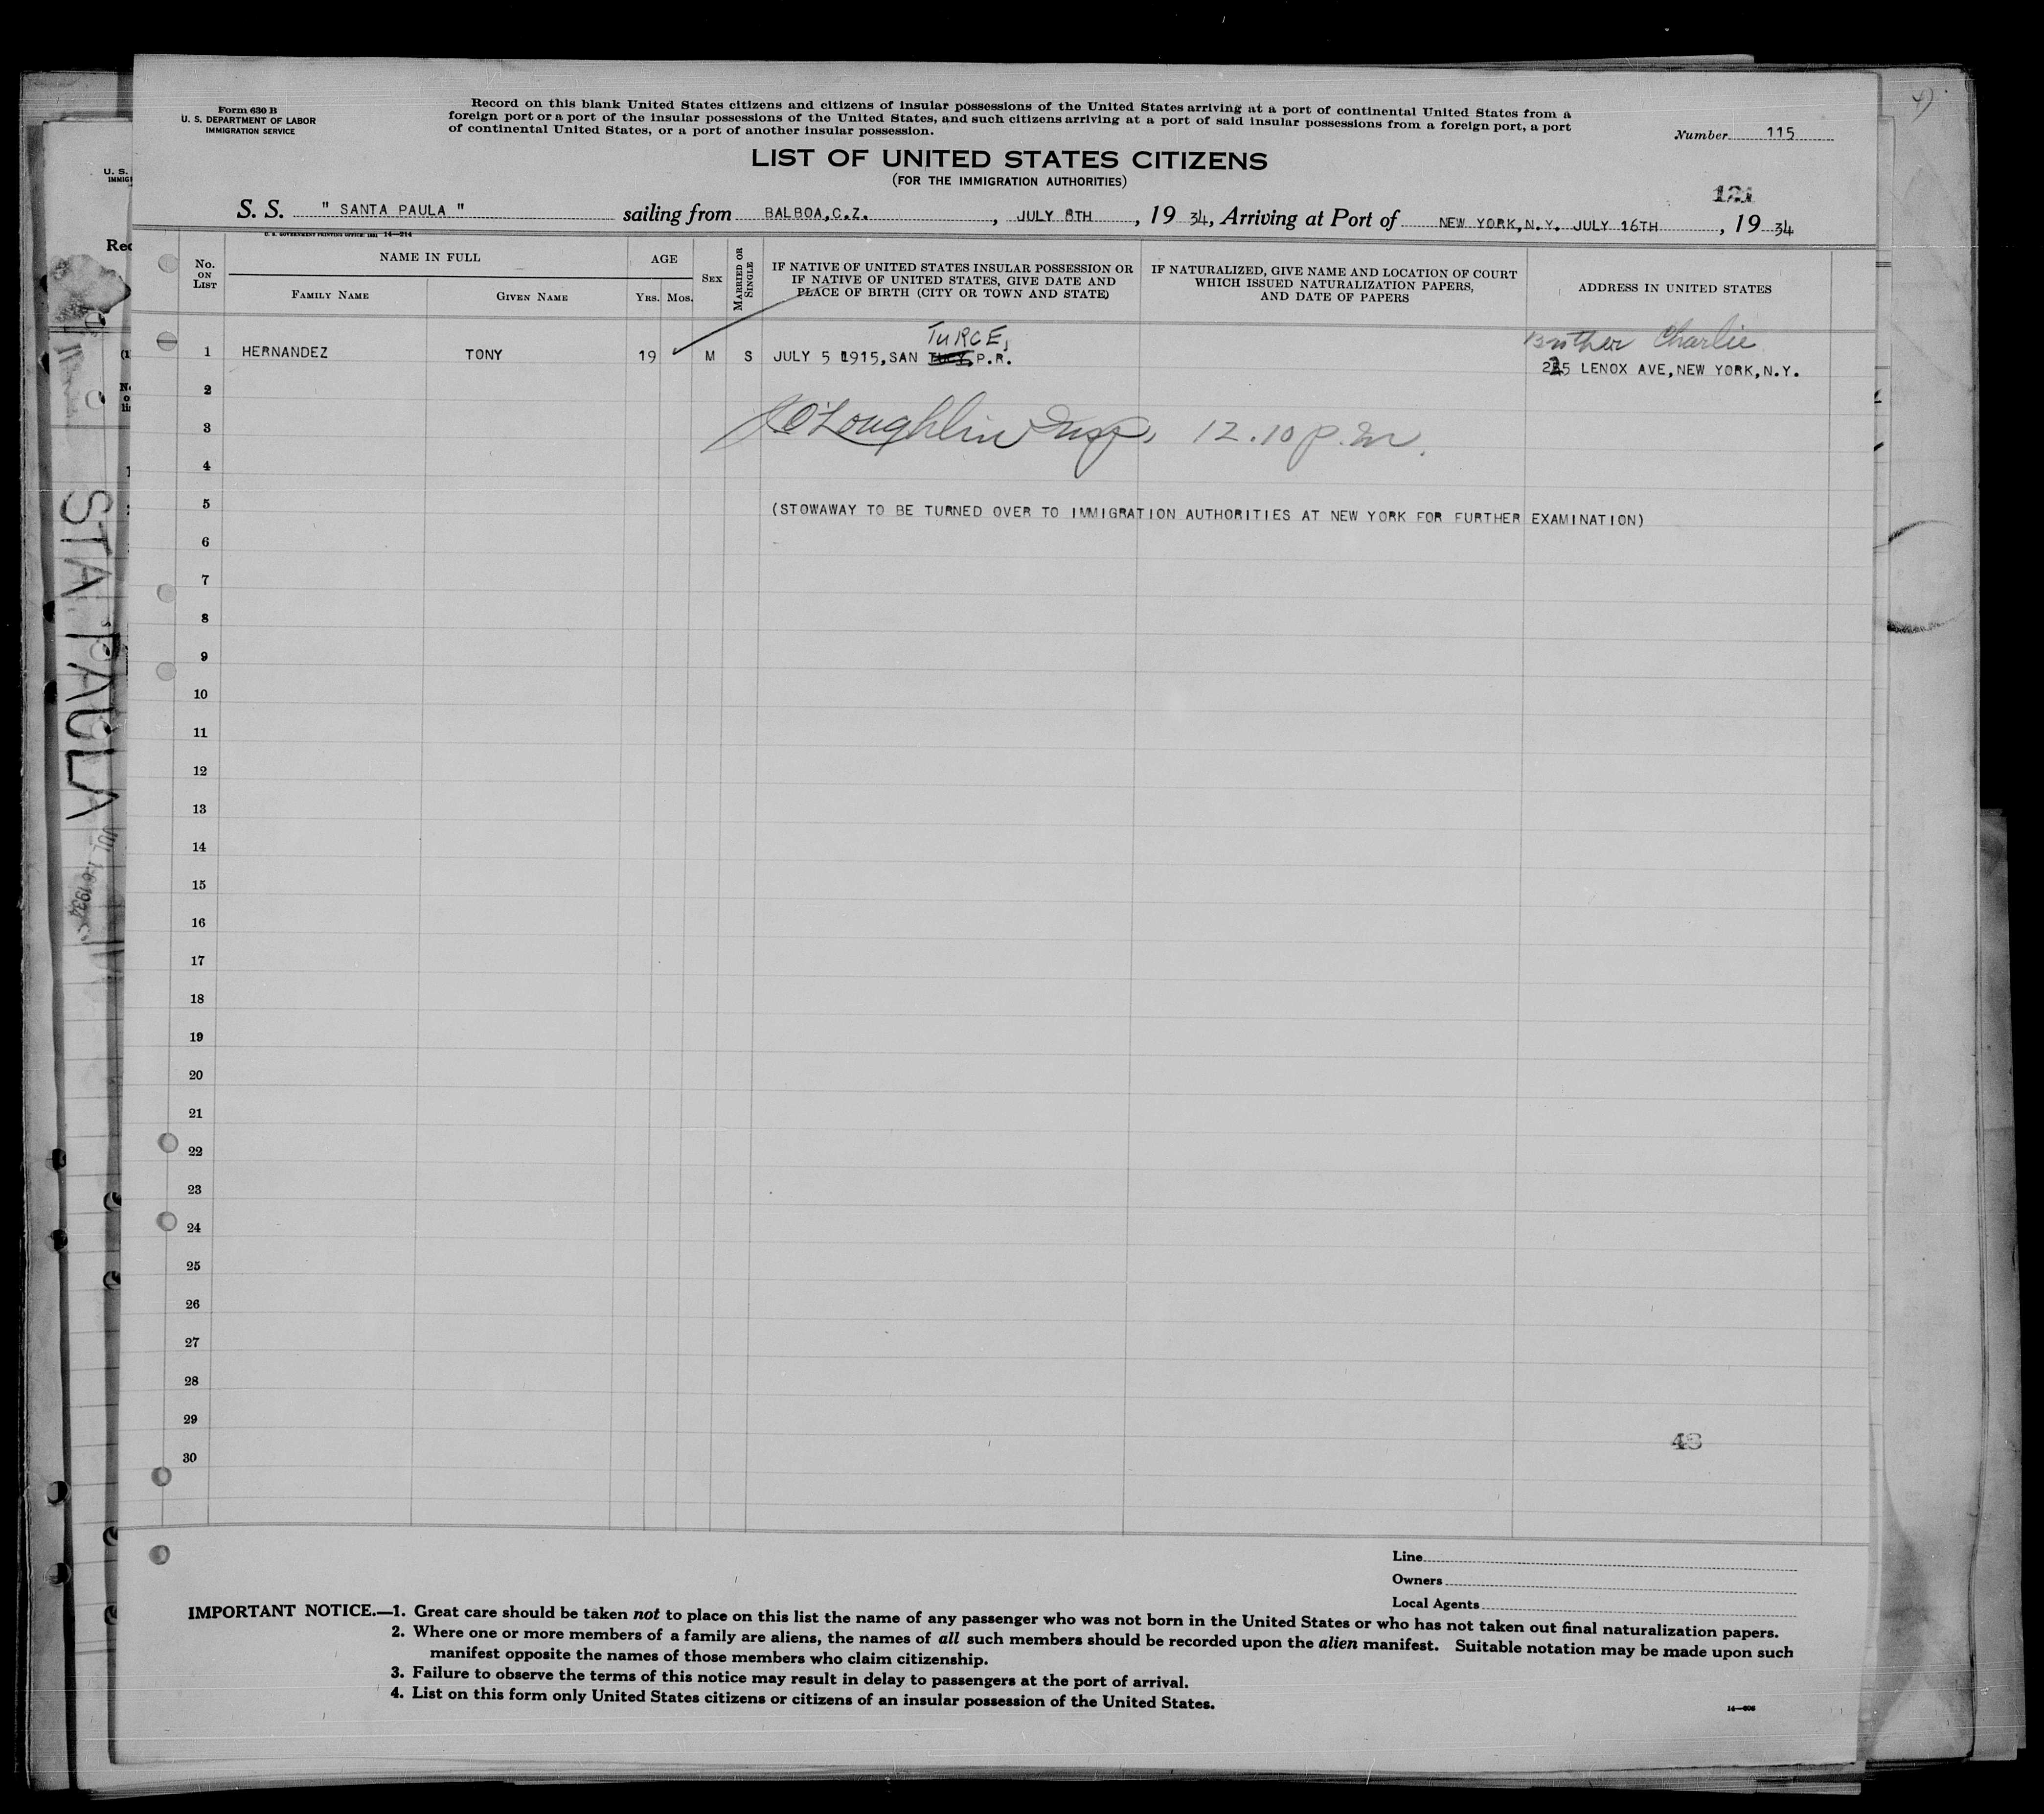 Form 630 B
U. S. DEPARTMENT OF LABOR
IMMIGRATION SERVICE
Record on this blank United States citizens and citizens of insular possessions of the United States arriving at a port of continental United States from a
foreign port or a port of the insular possessions of the United States, and such citizens arriving at a port of said insular possessions from a foreign port, a port
of continental United States, or a port of another insular possession.
Number 115
LIST OF UNITED STATES CITIZENS
(FOR THE IMMIGRATION AUTHORITIES)
121
S. S. " SANTA PAULA " sailing from BALBOA,C.Z. , JULY 8TH , 19 34, Arriving at Port of NEW YORK,N.Y. JULY 16TH , 19 34
U. S. GOVERNMENT PRINTING OFFICE: 1931 14—214
No. ON LIST
NAME IN FULL
FAMILY NAME
GIVEN NAME
AGE
YRS. MOS.
SEX
MARRIED OR SINGLE
IF NATIVE OF UNITED STATES INSULAR POSSESSION OR
IF NATIVE OF UNITED STATES, GIVE DATE AND
PLACE OF BIRTH (CITY OR TOWN AND STATE)
IF NATURALIZED, GIVE NAME AND LOCATION OF COURT
WHICH ISSUED NATURALIZATION PAPERS,
AND DATE OF PAPERS
ADDRESS IN UNITED STATES
TURCE,
Brother Charlie
1 HERNANDEZ TONY 19 M S JULY 5 1915, SAN P.R. LENOX AVE, NEW YORK, N.Y.
2
3 O'Loughlin Insp. 12.10 p.m.
4
5 (STOWAWAY TO BE TURNED OVER TO IMMIGRATION AUTHORITIES AT NEW YORK FOR FURTHER EXAMINATION)
6
7
8
9
10
11
12
13
14
15
16
17
18
19
20
21
22
23
24
25
26
27
28
29
30
Line
Owners
Local Agents
IMPORTANT NOTICE.—1. Great care should be taken not to place on this list the name of any passenger who was not born in the United States or who has not taken out final naturalization papers.
2. Where one or more members of a family are aliens, the names of all such members should be recorded upon the alien manifest. Suitable notation may be made upon such
manifest opposite the names of those members who claim citizenship.
3. Failure to observe the terms of this notice may result in delay to passengers at the port of arrival.
4. List on this form only United States citizens or citizens of an insular possession of the United States.
STA PAULA